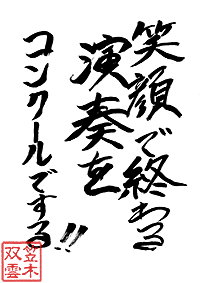 笑顔で終わる
演奏を
コンクールでする!!
笠木
双雲